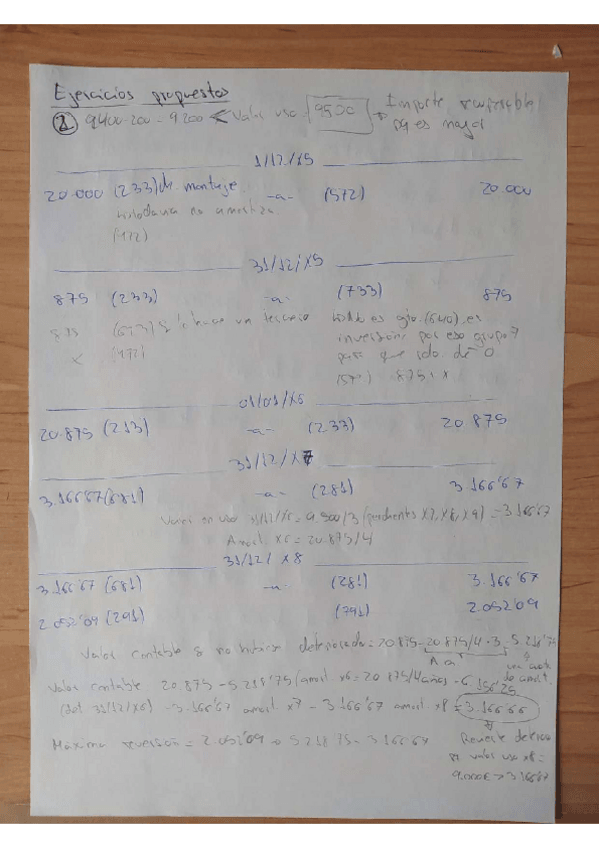 Ejercicios propuestos
② 9400-200 = 9200 < Valor uso 9500 → Importe recuperable
pq es mayor
1/12/X5
20.000 (233) de montaje -a- (572) 20.000
todavía no amortiza
(472)
31/12/X5
875 (233) -a- (733) 875
875 (623) Si lo hace un tercero
x (472)
gto. (640), es
inversión, por eso grupo 7
para que sdo. de 0
875+x
01/01/X6
20.875 (213) -a- (233) 20.875
31/12/X7
3.166'67 (681) -a- (281) 3.166'67
Valor en uso 31/12/X6 = 9.500/3 (pendientes X7, X8, X9) = 3.166'67
Amort. X6 = 20.875/4
31/12/X8
3.166'67 (681) -a- (281) 3.166'67
2.052'09 (291) (791) 2.052'09
Valor contable si no hubiera deteriorado = 20.875 - 20.875/4 · 3 = 5.218'75
AA
de amort.
Valor contable 20.875 - 5.218'75 (amort X6 = 20.875/4 años - 6.156'25
(det 31/12/X6) - 3.166'67 amort X7 - 3.166'67 amort. X8 = 3.166'66
Máxima reversión = 2.052'09 = 5.218'75 - 3.166'67
Revierte deterioro
valor uso X8 =
9.000€ > 3.166'67